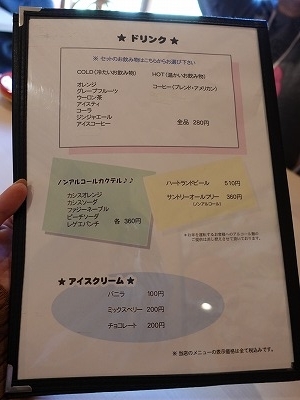 ★ ドリンク ★
※ セットのお飲み物はこちらからお選び下さい
COLD(冷たいお飲み物)
オレンジ
グレープフルーツ
ウーロン茶
アイスティ
コーラ
ジンジャエール
アイスコーヒー
HOT(温かいお飲み物)
コーヒー(ブレンド・アメリカン)
全品 280円
ノンアルコールカクテル♪♪
カシスオレンジ
カシスソーダ
ファジーネーブル
ピーチソーダ
レゲエパンチ
各 360円
ハートランドビール 510円
サントリーオールフリー 360円
(ノンアルコール)
★ アイスクリーム ★
バニラ 100円
ミックスベリー 200円
チョコレート 200円
※ 当店のメニューの表示価格は全て税込みです。